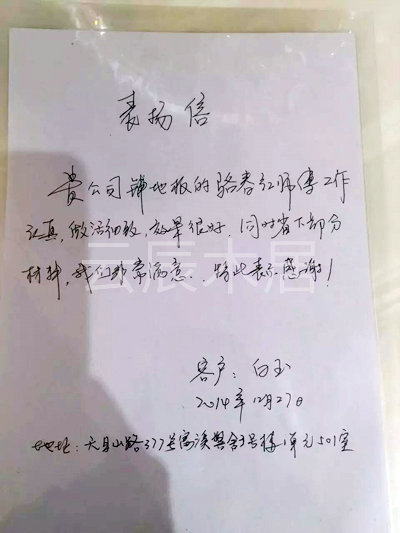 表扬信
贵公司铺地板的骆春红师傅工作
认真,做活细致,效果很好,同时省下部分
材料,我们非常满意.特此表示感谢!
客户:白玉
2014年12月27日
地址:天目山路377号 3号楼1单元501室
云辰木居